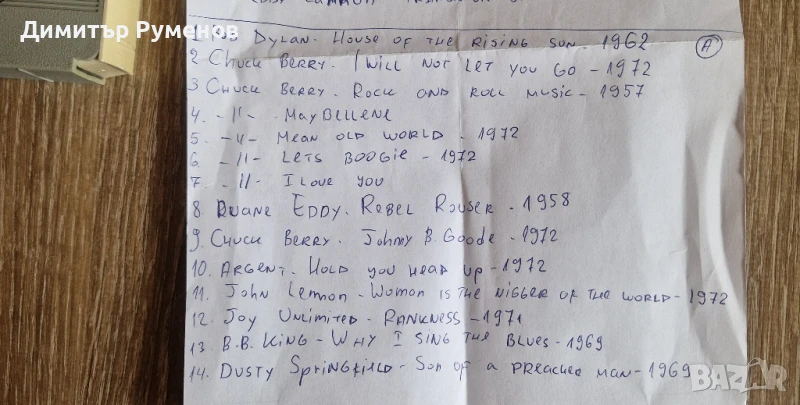 Димитър Руменов
Dylan - House of the Rising Sun - 1962 (A)
2 Chuck Berry - I Will Not Let You Go - 1972
3 Chuck Berry - Rock and Roll Music - 1957
4. -"- Maybellene
5. -"- Mean Old World - 1972
6 -"- Lets Boogie - 1972
7 -"- I Love You
8. Duane Eddy - Rebel Rouser - 1958
9. Chuck Berry - Johny B. Goode - 1972
10. Argent - Hold You Head Up - 1972
11. John Lennon - Woman is the Nigger of the World - 1972
12. Joy Unlimited - Rankness - 1971
13. B.B. King - Why I Sing the Blues - 1969
14. Dusty Springfield - Son of a Preacher Man - 1969
BAZAR